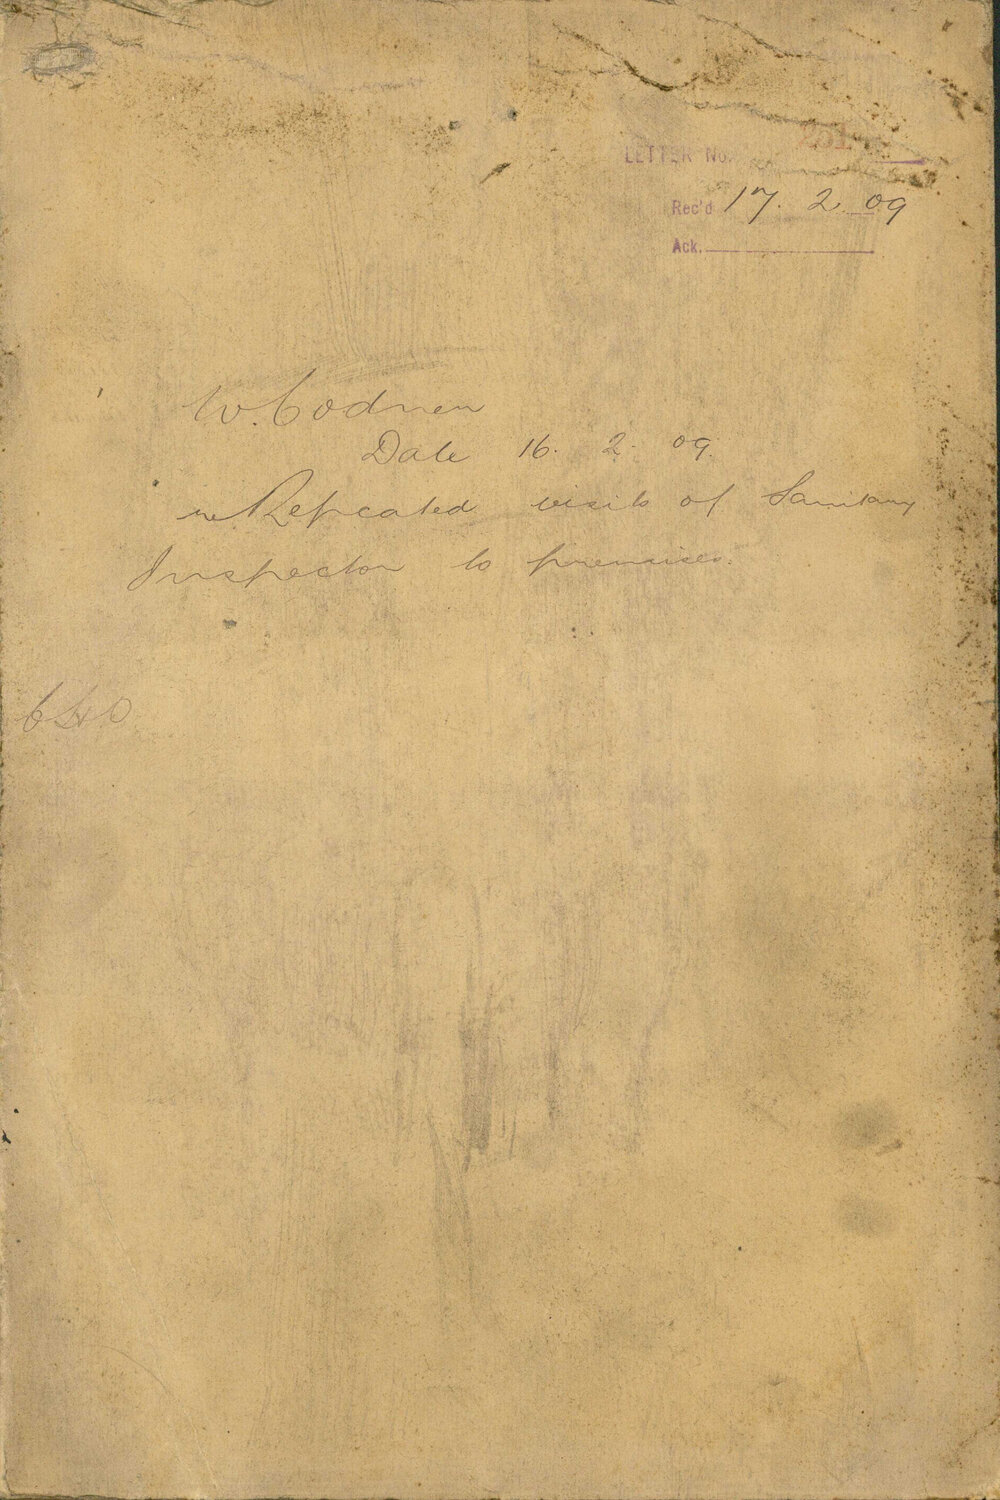 LETTER No. 251
Rec'd 17. 2. 09
Ack.
W. Codnen
Date 16. 2. 09.
re Repeated visits of Sanitary
Inspector to premises.